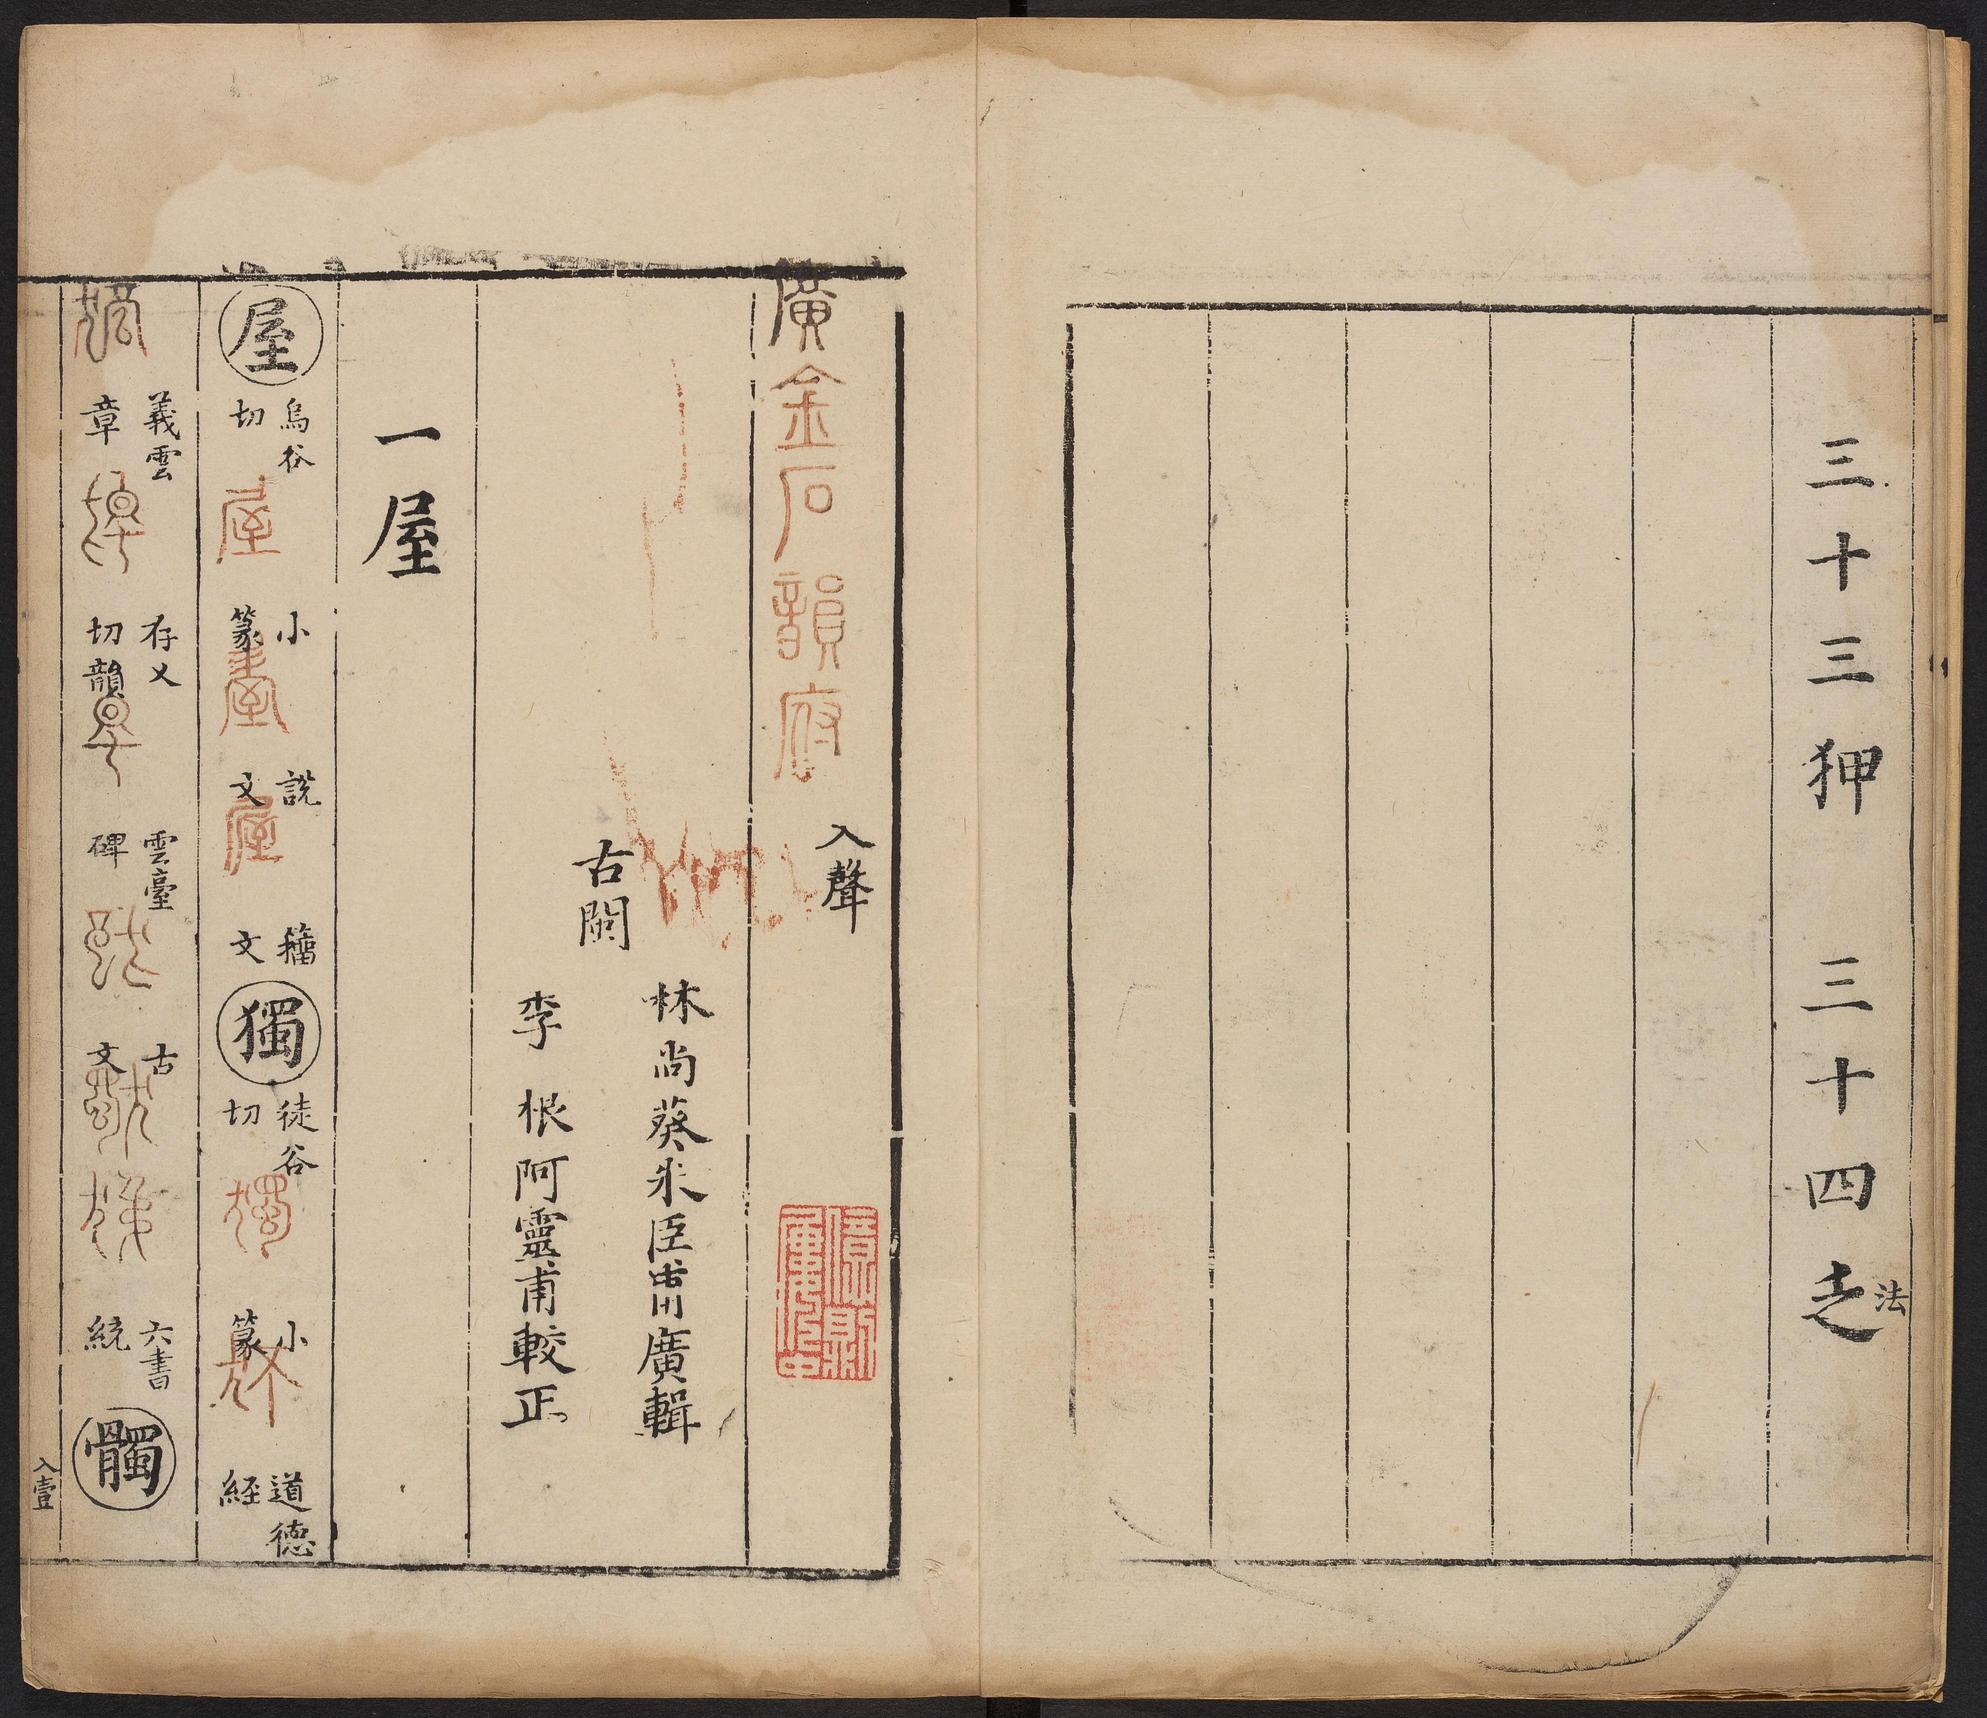 三十三狎 三十四㳒法
廣金石韻府 入聲
林尚葵朱臣甫廣輯
古閩
李根阿靈甫較正
一屋
屋 烏谷切 屋 小篆 說文 籀文 獨 徒谷切 獨 小篆 道德經
義雲章 存乂切韻 雲臺碑 古文 六書統 髑
入壹